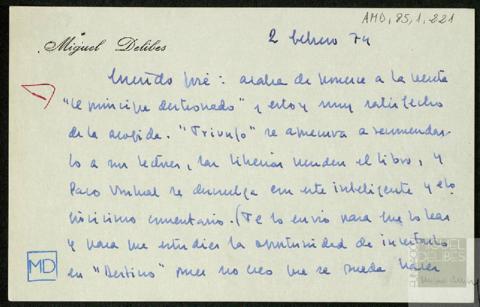 AMD, 85, 1, 221
Miguel Delibes
2 febrero 74
Querido José: acaba de ponerse a la venta
"el príncipe destronado" y estoy muy satisfecho
de la acogida. "Triunfo" se apresura a recomendar-
lo a sus lectores, las librerías venden el libro, y
Paco Umbral se descuelga con este inteligente y elo
giosísimo comentario. (Te lo envío para que lo leas
y para que estudies la oportunidad de insertarlo
en "Destino" pues no creo que se pueda hacer
MD
FUNDACIÓN MIGUEL DELIBES